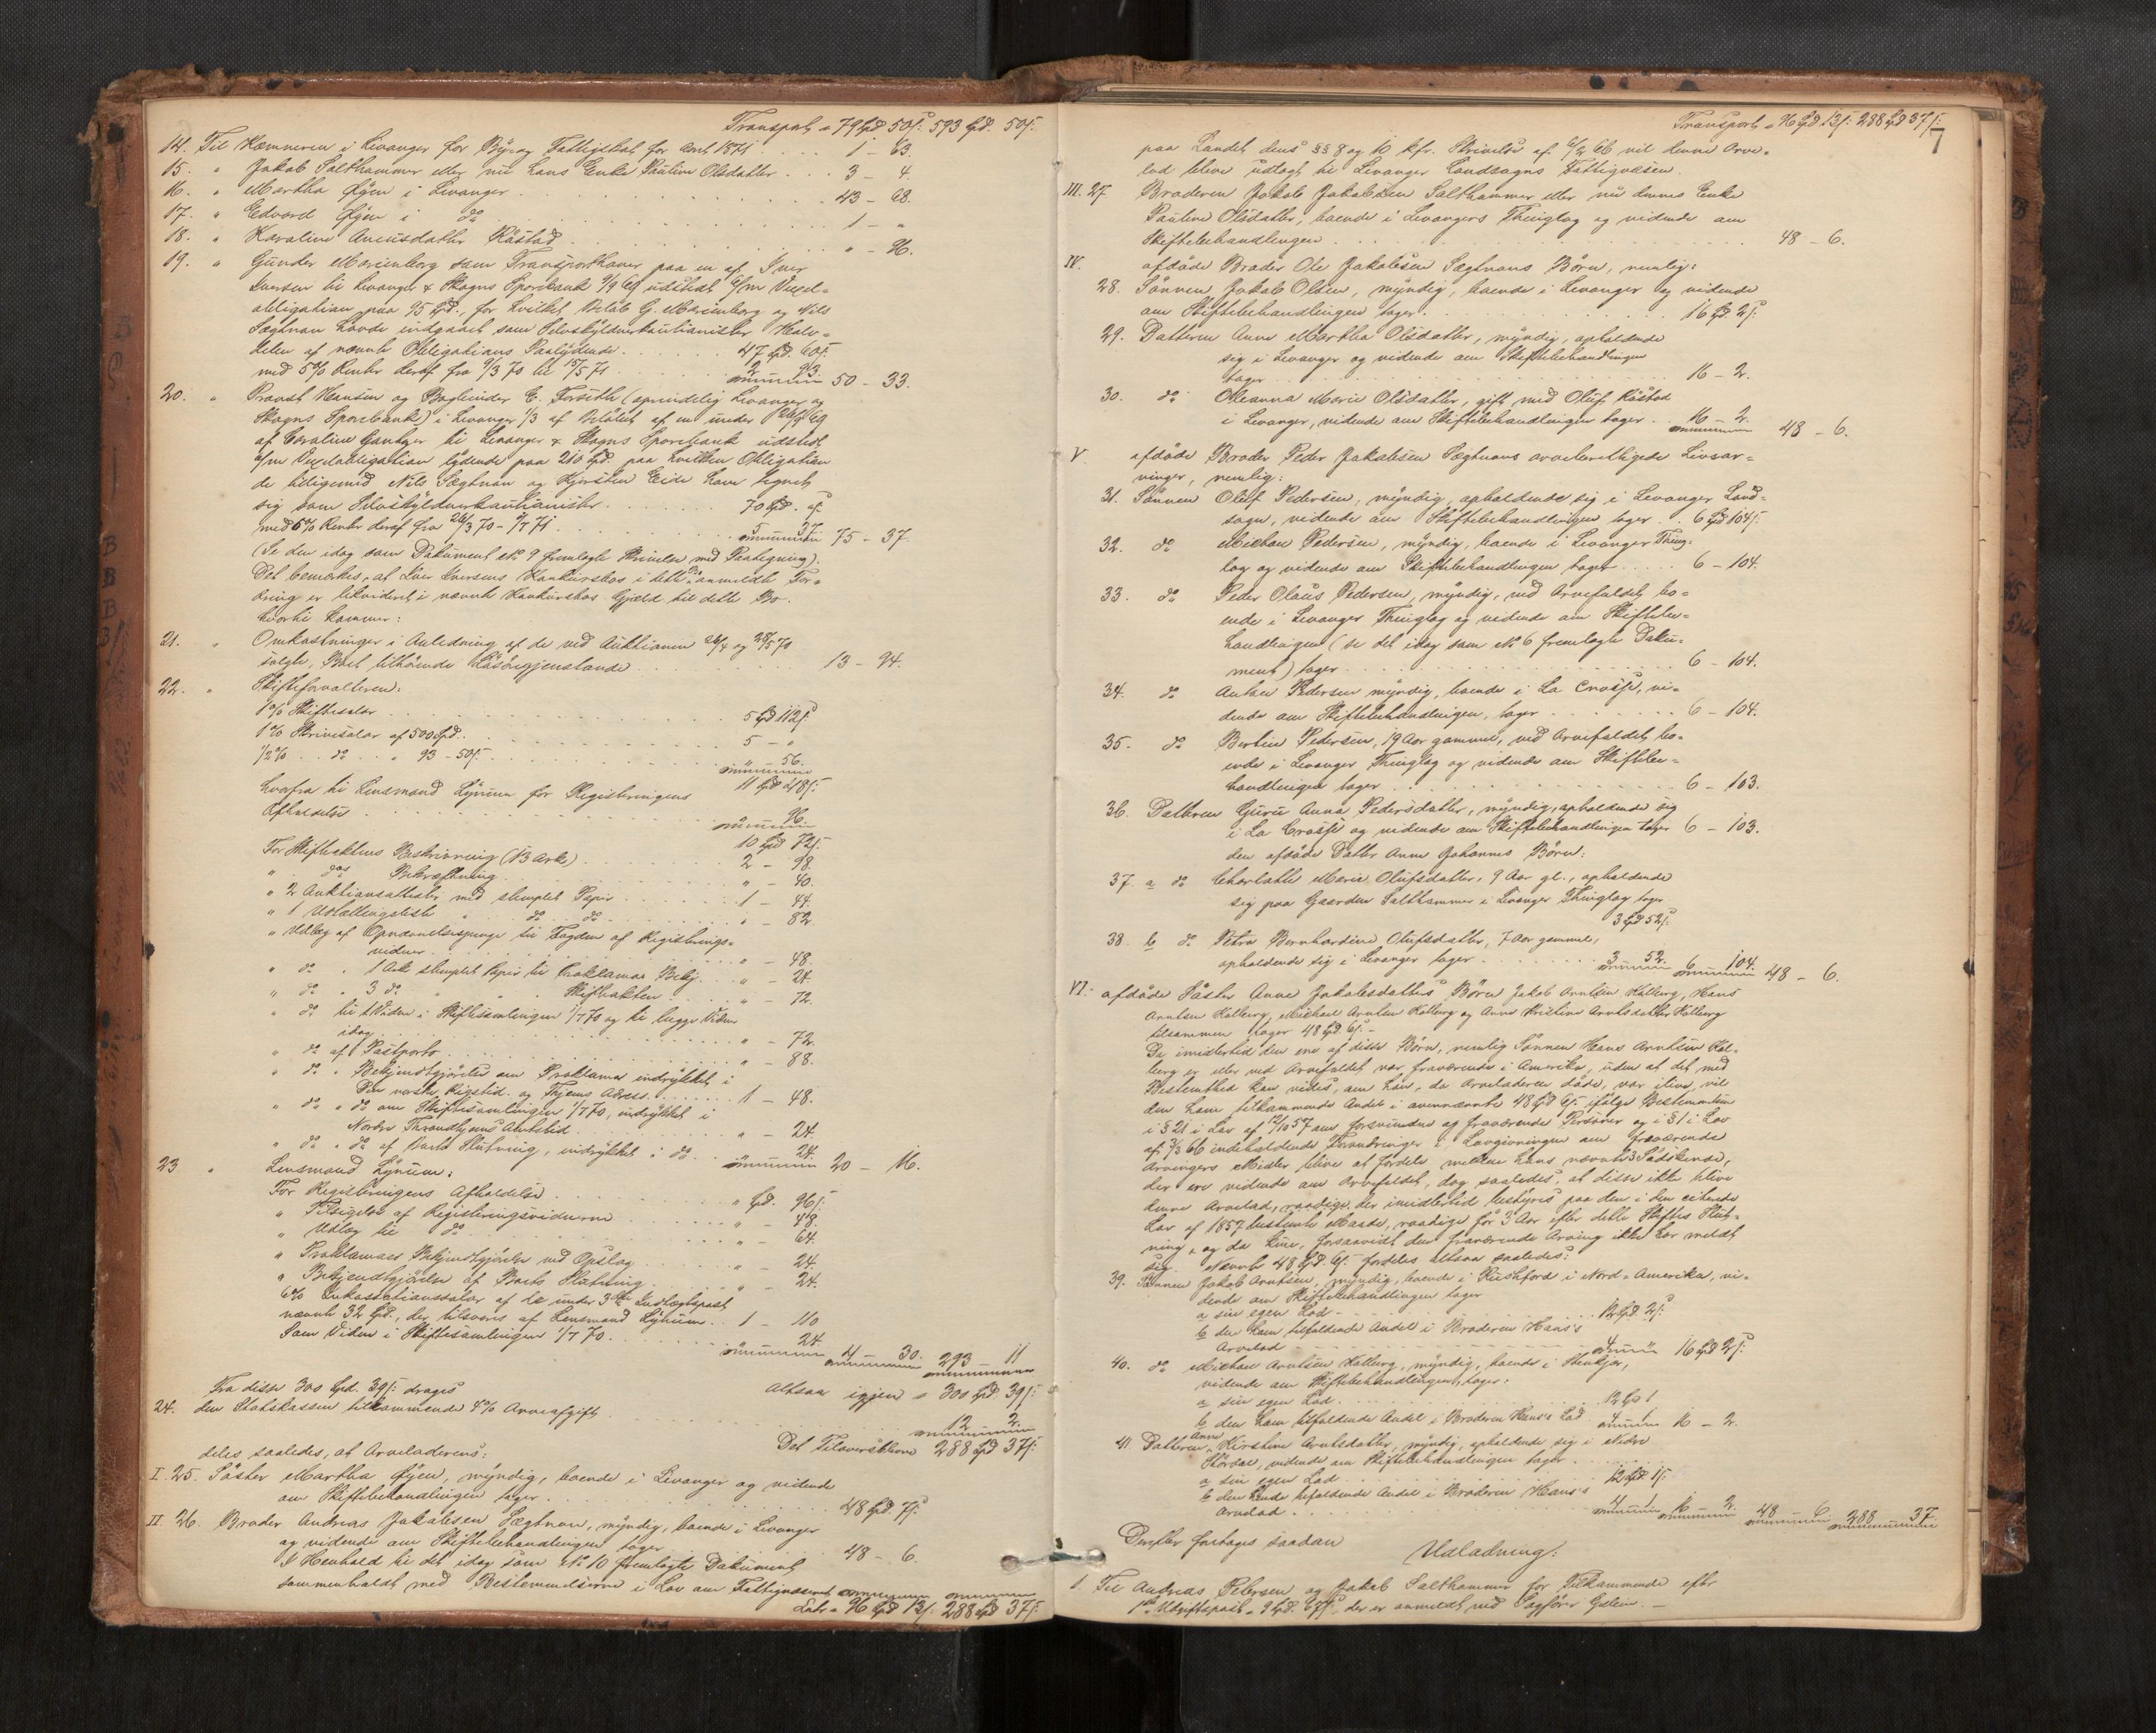 Transport = 79 Spd 50 s: 593 Spd. 50 s:
14. Til Kæmneren i Levanger for By- og Fattigskat for Aaret 1871 . . . 1 63.
15. " Jakob Salthammer eller nu hans Enke Pauline Olsdatter . . . 3 - 4.
16. " Martha Øyen i Levanger . . . 43 - 68.
17. " Edvard Øyen i do . . . 1 - "
18. " Karoline Anensdatter Råstad . . . " - 96.
19. " Gunder Marienborg som Transporthaver paa en af Iver
Iversen til Levanger & Skogns Sparebank 9/9 69 udstedt 6/m Vexel=
obligation paa 95 Spd., for hvilket Beløb G. Marienborg og Nils
Sægtnan havde indgaaet som Selvskyldnerkautionister Halv=
delen af nævnte Obligations Paalydende . . . 47 Spd. 60 s.
med 5% Renter deraf fra 9/3 70 til 15/5 71 . . . 2 93. 50 - 33.
20. " Provst Hansen og Boghandler E. Forseth (oprindelig Levanger og
Skogns Sparebank) i Levanger 1/3 af Beløbet af en under 26/9 69
af Caroline til Levanger & Skogns Sparebank udstedt
6/m Vexelobligation lydende paa 210 Spd. paa hvilken Obligation
de tilligemed Nils Sægtnan og Kjersten Eide have tegnet
sig som Selvskyldnerkautionister . . . 70 Spd. " s.
med 6% Renter deraf fra 26/3 70 - 71 . . . 5 37 75 - 37.
(Se den idag som Dokument No 9 fremlagte Skrivelse med Paategning).
Det bemærkes, at Iver Iversens Konkursbos i dette Bo anmeldte For=
dring er likvideret i nævnte Konkursbos Gjæld til dette Bo.
hvortil kommer:
21. " Omkostninger i Anledning af de ved Auktionen 26/4 og 28/5 70
solgte, Boet tilhørende Løsøregjenstande . . . 13 - 94.
22. " Skifteforvalteren:
1% Skiftesalær . . . 5 Spd 112 s
1% Skrivesalær af 500 Spd. . . . 5 - "
1/2% . . do . . " 93 - 50 s. . . . " - 56.
11 Spd 48 s.
hvorfra til Lensmand Lynum for Registreringens
Afholdelse . . . 96.
10 Spd 72 s.
For Skifteaktens Beskrivning (13 Ark) . . . 2 - 98.
" dos Bekræftning . . . " - 40.
" 2 Auktionsattester med stemplet Papir . . . 1 - 44.
" 1 Udlæggsliste " do do . . . " - 82
" Udlæg af Opnævnelsespenge til Fogden af Registrerings=
vidner . . . " - 48.
" do " 1 Ark stemplet Papir til Proklamas Bekj. . . . " - 24.
" do " 3 do " " Skifteakten . . . " - 72.
" do til 1 Vidne i Skiftesamlingen 1/7 70 og til begge Vidner
idag . . . " - 72.
" do af Postporto . . . " - 88.
" do " Bekjendtgjørelse om Proklama indrykket i
Den norske Rigstid. og Thjems Adres. . . . 1 - 48.
" do " do om Skiftesamlingen 1/7 70, indrykket i
Nordre Throndhjems Amtstid. . . . " - 24.
" do " do af Boets Slutning, indrykket i do . . . " 24. 20 - 16.
23 " Lensmand Lynum:
For Registreringens Afholdelse . . . " Spd. 96 s.
" Tilsigelse af Registreringsvidnerne . . . " - 48.
" Udlæg til do . . . " - 64.
" Proklamas Bekjendtgjørelse ved Opslag . . . " - 24.
" Bekjendtgjørelse af Boets Slutning . . . " - 24.
6% Inkassationssalær af de under 3die Indtægtspost
nævnte 32 Spd., der tilsvares af Lensmand Lynum . . 1 - 110
Som Vidne i Skiftesamlingen 1/7 70 . . . " 24. 4 - 30. 293 - 11
Altsaa igjen = 300 Spd. 39 s:
Fra disse 300 Spd. 39 s: drages
24. den Statskassen tilkommende 4% Arveafgift . . . 12 2.
Det Tiloversblevne 288 Spd 37 s:
deles saaledes, at Arveladerens:
I. 25. Søster Martha Øyen, myndig, boende i Levanger og vidende
om Skiftebehandlingen tager . . . 48 Spd. 7 s.
II. 26. Broder Andreas Jakobsen Sægtnan, myndig, boende i Levanger
og vidende om Skiftebehandlingen tager . . . 48 - 6.
I Henhold til det idag som No 10 fremlagte Dokument
sammenholdt med Bestemmelserne i Lov om Fattigvæsenet
Lats = 96 Spd 13 s: 288 Spd 37 s:
Transport = 96 Spd 13 s: 288 Spd 37 s:
7
paa Landet dens §§ 8 og 10 kfr. Skrivelse af 6/2 66 vil denne Arve=
lod blive udlagt til Levanger Landsogns Fattigvæsen.
III. 27. Broderen Jakob Jakobsen Salthammer eller nu dennes Enke
Pauline Olsdatter, boende i Levangers Thinglag og vidende om
Skiftebehandlingen . . . 48 - 6.
IV. afdøde Broder Ole Jakobsen Sægtnans Børn, nemlig:
28. Sønnen Jakob Olsen, myndig, boende i Levanger og vidende
om Skiftebehandlingen tager . . . 16 Spd. 2 s.
29. Datteren Anne Martha Olsdatter, myndig, opholdende
sig i Levanger og vidende om Skiftebehandlingen
tager . . . 16 - 2.
30. do Oleanna Marie Olsdatter, gift med Oluf Råstad
i Levanger, vidende om Skiftebehandlingen tager . . 16 - 2. 48 - 6.
V. afdøde Broder Peder Jakobsen Sægtnans arveberettigede Livsar=
vinger, nemlig:
31. Sønnen Oluf Pedersen, myndig, opholdende sig i Levanger Land=
sogn, vidende om Skiftebehandlingen tager . . 6 Spd 104 s:
32. do Michan Pedersen, myndig, boende i Levanger Thing=
lag og vidende om Skiftebehandlingen tager . . . 6 - 104.
33. do Peder Olaus Pedersen, myndig, ved Arvefaldet bo=
ende i Levanger Thinglag og vidende om Skiftebe=
handlingen (se det idag som No 6 fremlagte Doku=
ment) tager . . . 6 - 104.
34. do Anton Pedersen myndig, boende i La Crosse, vi=
dende om Skiftebehandlingen, tager . . . 6 - 104.
35. do Bertin Pedersen, 19 Aar gammel, ved Arvefaldet bo=
ende i Levanger Thinglag og vidende om Skiftebe=
handlingen tager . . . 6 - 103.
36. Datteren Guru Anna Pedersdatter, myndig, opholdende sig
i La Crosse og vidende om Skiftebehandlingen tager 6 - 103.
den afdøde Datter Anne Johannes Børn:
37. a do Charlotte Marie Olufsdatter, 9 Aar gl., opholdende
sig paa Gaarden Salthammer i Levanger Thinglag tager
3 Spd 52 s:
38. b do Petra Bernhardine Olufsdatter, 7 Aar gammel,
opholdende sig i Levanger tager . . . 3 52. 6 104. 48 - 6.
VI. afdøde Søster Anne Jakobsdatters Børn Jakob Arntsen Kolberg, Hans
Arntsen Kolberg, Michael Arntsen Kolberg og Anne Kirstine Arntsdatter Kolberg
tilsammen tager 48 Spd. 6 s. -
Da imidlertid den ene af disse Børn, nemlig Sønnen Hans Arntsen Kol=
berg er eller ved Arvefaldet var fraværende i Amerika, uden at det med
Bestemthed kan vides, om han, da Arveladeren døde, var ilive, vil
den ham tilkommende Andel i ovennævnte 48 Spd 6 s. ifølge Bestemmelsen
i § 21 i Lov af 12/10 57 om forsvundne og fraværende Personer og i § 1 i Lov
af 3/3 66 indeholdende Forandringer i Lovgivningen om fraværende
Arvingers Midler blive at fordele mellem hans nævnte 3 Sødskende,
der ere vidende om Arvefaldet, dog saaledes, at disse ikke blive
denne Arvelod, raadige, der imidlertid bestyres paa den i den citerede
Lov af 1857 bestemte Maade, raadige før 3 Aar efter dette Skiftes Slut=
ning, og da kun, forsaavidt den fraværende Arving ikke har meldt
sig. Nævnte 48 Spd. 6 s. fordeles altsaa saaledes:
39. Sønnen Jakob Arntsen, myndig, boende i Rushford i Nord-Amerika, vi=
dende om Skiftebehandlingen tager
a sin egen Lod . . . 12 Spd 2 s:
b den ham tilfaldende Andel i Broderen Hans's
Arvelod . . . 4 " 16 Spd 2 s:
40. do Michan Arntsen Kolberg, myndig, boende i Stenkjær,
vidende om Skiftebehandlingen, tager:
a sin egen Lod . . . 12 Spd 1
b den ham tilfaldende Andel i Broderen Hans's Lod . 4 1 16 - 2.
41. Datteren Anne Kirstine Arntsdatter, myndig, opholdende sig i Nedre
Størdal, vidende om Skiftebehandlingen tager
a sin egen Lod . . . 12 Spd. 1 s.
b den hende tilfaldende Andel i Broderen Hans's
Arvelod . . . 4 1 16 - 2. 48 - 6 288 37.
Derefter foretages saadan
Udlodning:
1. Til Andreas Petersen og Jakob Salthammer for Tilkommende efter
1ste Udgiftspost = 9 Spd. 67 s., der er anmeldt ved Sagfører Gslein. -